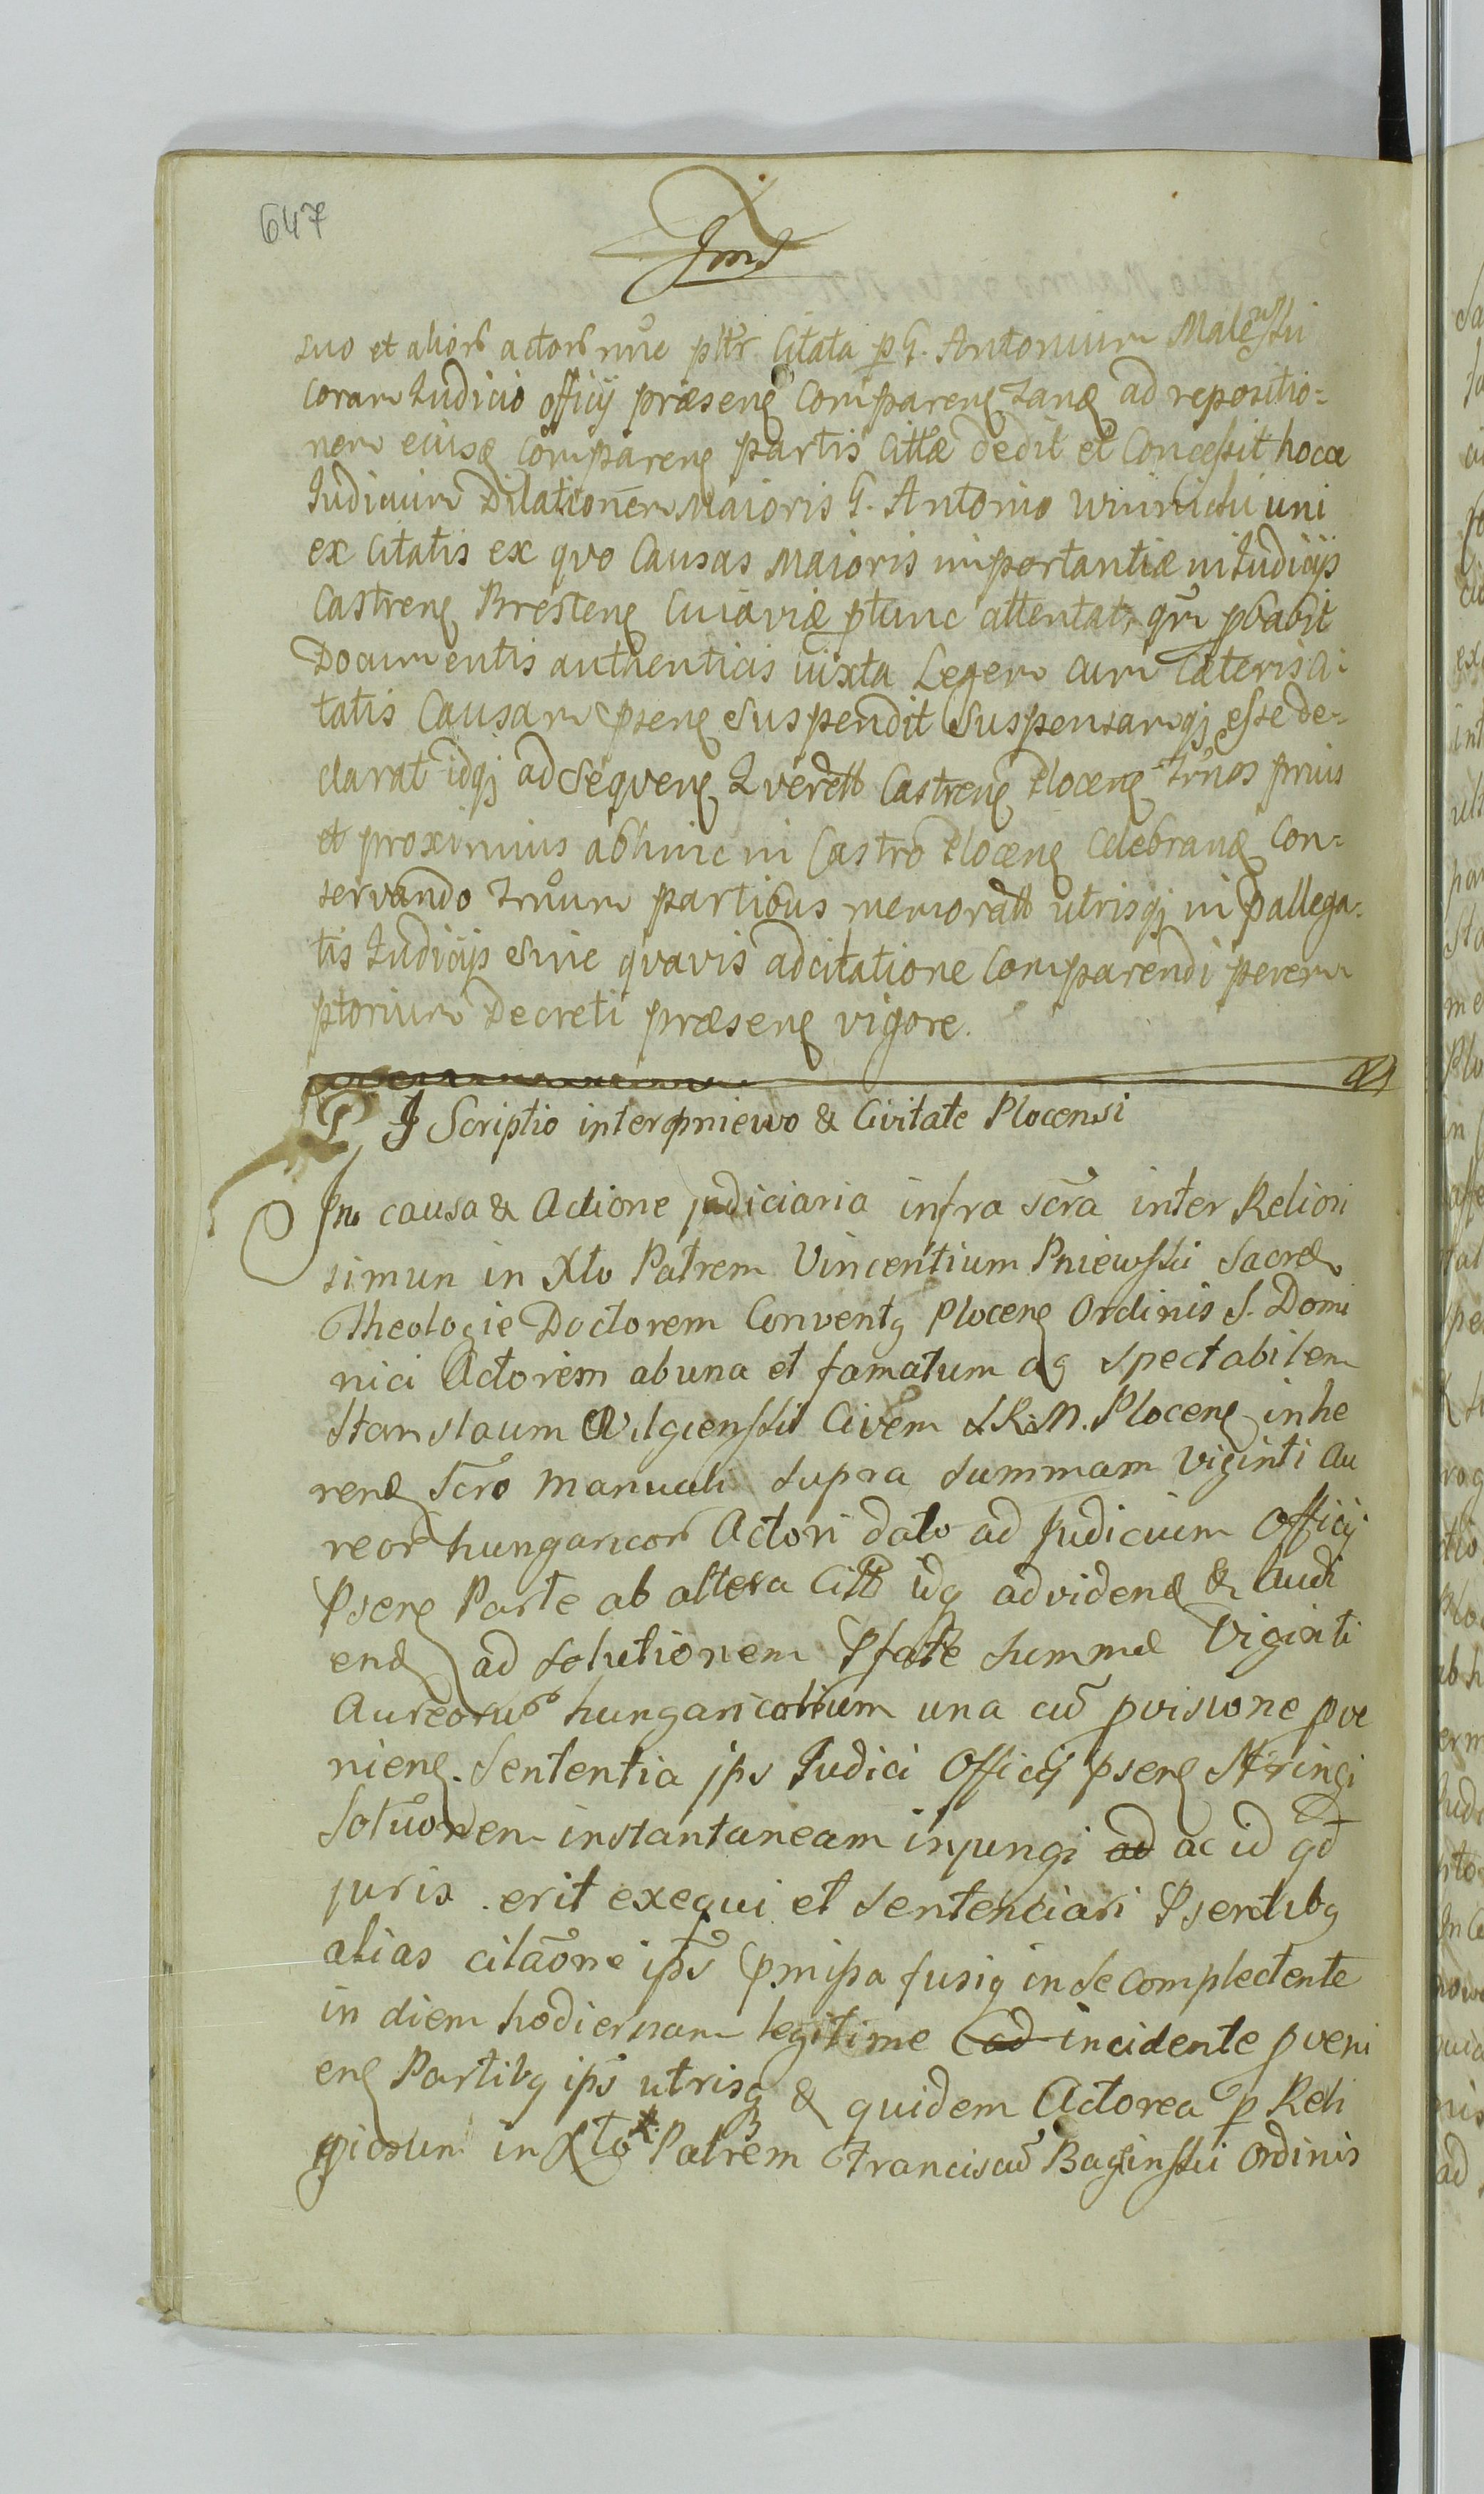 647
suo et alior actor nuc pltr Citata p G. Antonium Malewski
coram Judicio officij præsenꝭ Comparenꝭ Janꝭ ad repositio=
nem eiusꝭ Comparenꝭ partis Cittæ dedit et Concessit hocce
Judicium Dilationem Maioris G. Antonio Winnicki uni
ex Citatis ex qvo Causas Maioris importantiæ in Judicijs
Castrenꝭ Brestenꝭ Cuiaviæ ptunc attentat, qm pbabit
Documentis authenticis iuxta Legem cum Cæteris Ci=
tatis Causam psenꝭ Suspendit Suspensamqj esse de=
clarat idqj ad Seqvenꝭ Qverett Castrenꝭ Plocenꝭ Trnos prius
et proximius abhinc in Castro Plocenꝭ Celebranꝭ Con=
servando Trnum partibus memoratt utrisqj in pallega=
tis Judicijs Sine qvavis adcitatione Comparendi perem
ptorium Decreti præsenꝭ vigore.
JScriptio inter Pniewo & Civitate Plocensi
In causa & Actione judiciaria infra scra inter Religi
simun in Xto Patrem Vincentium Pniewski Sacræ
Theologie Doctorem Conventꝰ Plocenꝭ Ordinis S. Domi
nici Actorem ab una et famatum ac spectabilem
Stanslaum Wilgienski Civem S.R.M. Plocenꝭ inhe
renꝭ Scro manuali supra summam viginti au
reor hungaricor Actori dato ad Judicium Officij
Psenꝭ Parte ab altera Citt idꝙ ad videnꝭ & Audi
enꝭ ad solutionem Pfate summæ Viginti
Aureorum hungaricorum una cu pvisione pve
nienꝭ. Sententia jps Judici Officij psenꝭ Stringi
Solutionem instantaneam injungi ad ac id qd
juris erit exequi et Sentenciari Psentibꝰ
alias citaone ips Pmissa fusiꝰ in Se complectente
in diem hodiernam legitime Cad incidente pveni
enꝭ Partibꝰ ips utrisqꝫ & quidem Actorea p Reli
giosum in Xto Patrem Franciscu Baginski Ordinis